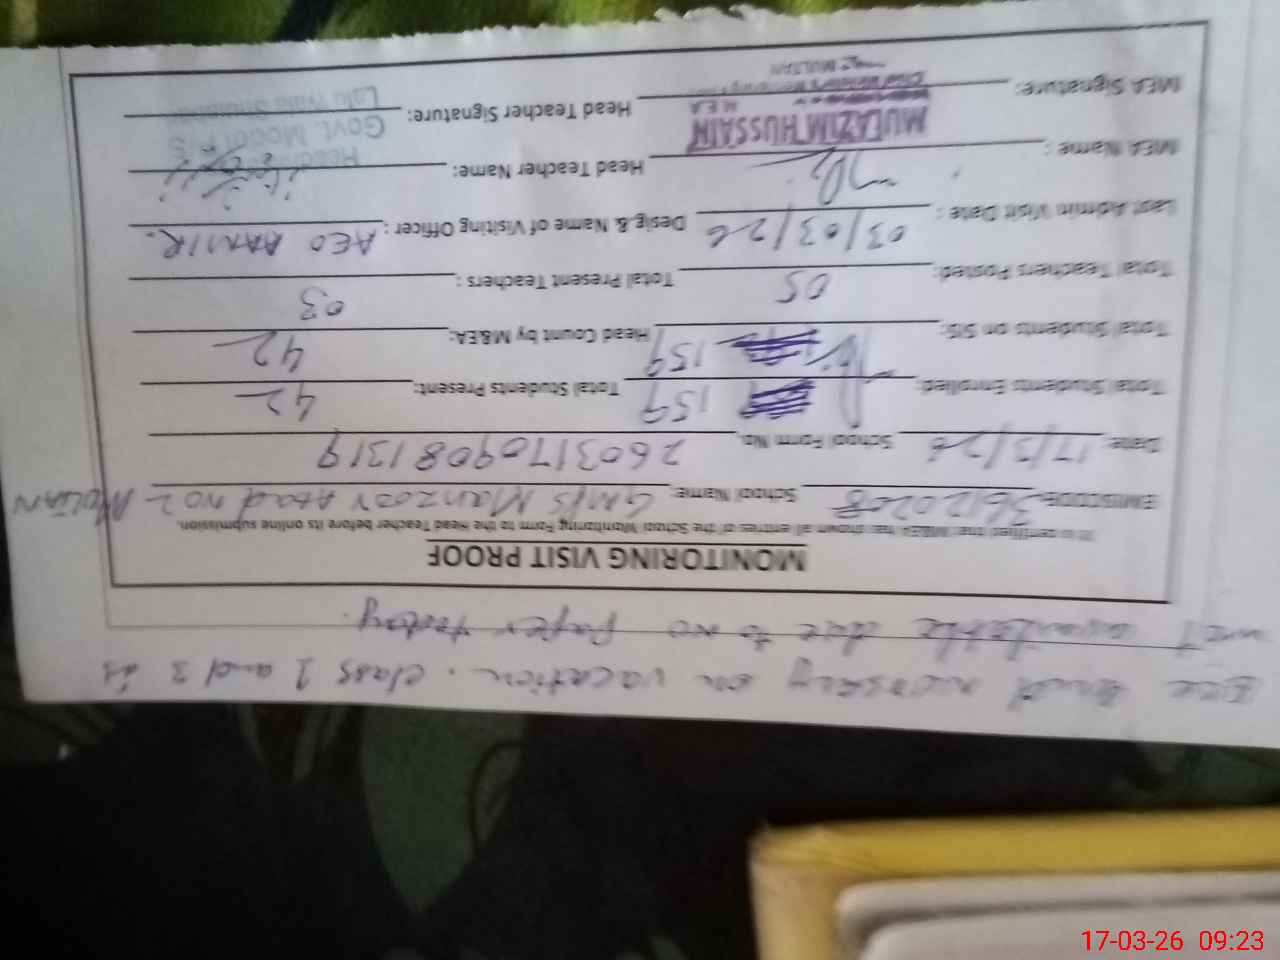 ECE and nursery on vacation. class 1 and 3 is
not available due to no paper today.
MONITORING VISIT PROOF
It is certified that M&EA has shown all entries of the School Monitoring Form to the Head Teacher before its online submission.
EMISCODE: 36120208 School Name: GMPS Manzoor Abad NO 2 MULTAN
Date: 17/3/26 School Form No. 26031709081319
Total Students Enrolled: 159 Total Students Present: 42
Total Students on SIS: 159 Head Count by M&EA: 42
Total Teachers Posted: 05 Total Present Teachers: 03
Last Admin Visit Date: 03/03/26 Desig.& Name of Visiting Officer: AEO AAMIR.
MEA Name: Head Teacher Name:
MULAZIM HUSSAIN
M.E.A
MULTAN
Govt. Model P/S
MEA Signature: Head Teacher Signature:
17-03-26 09:23